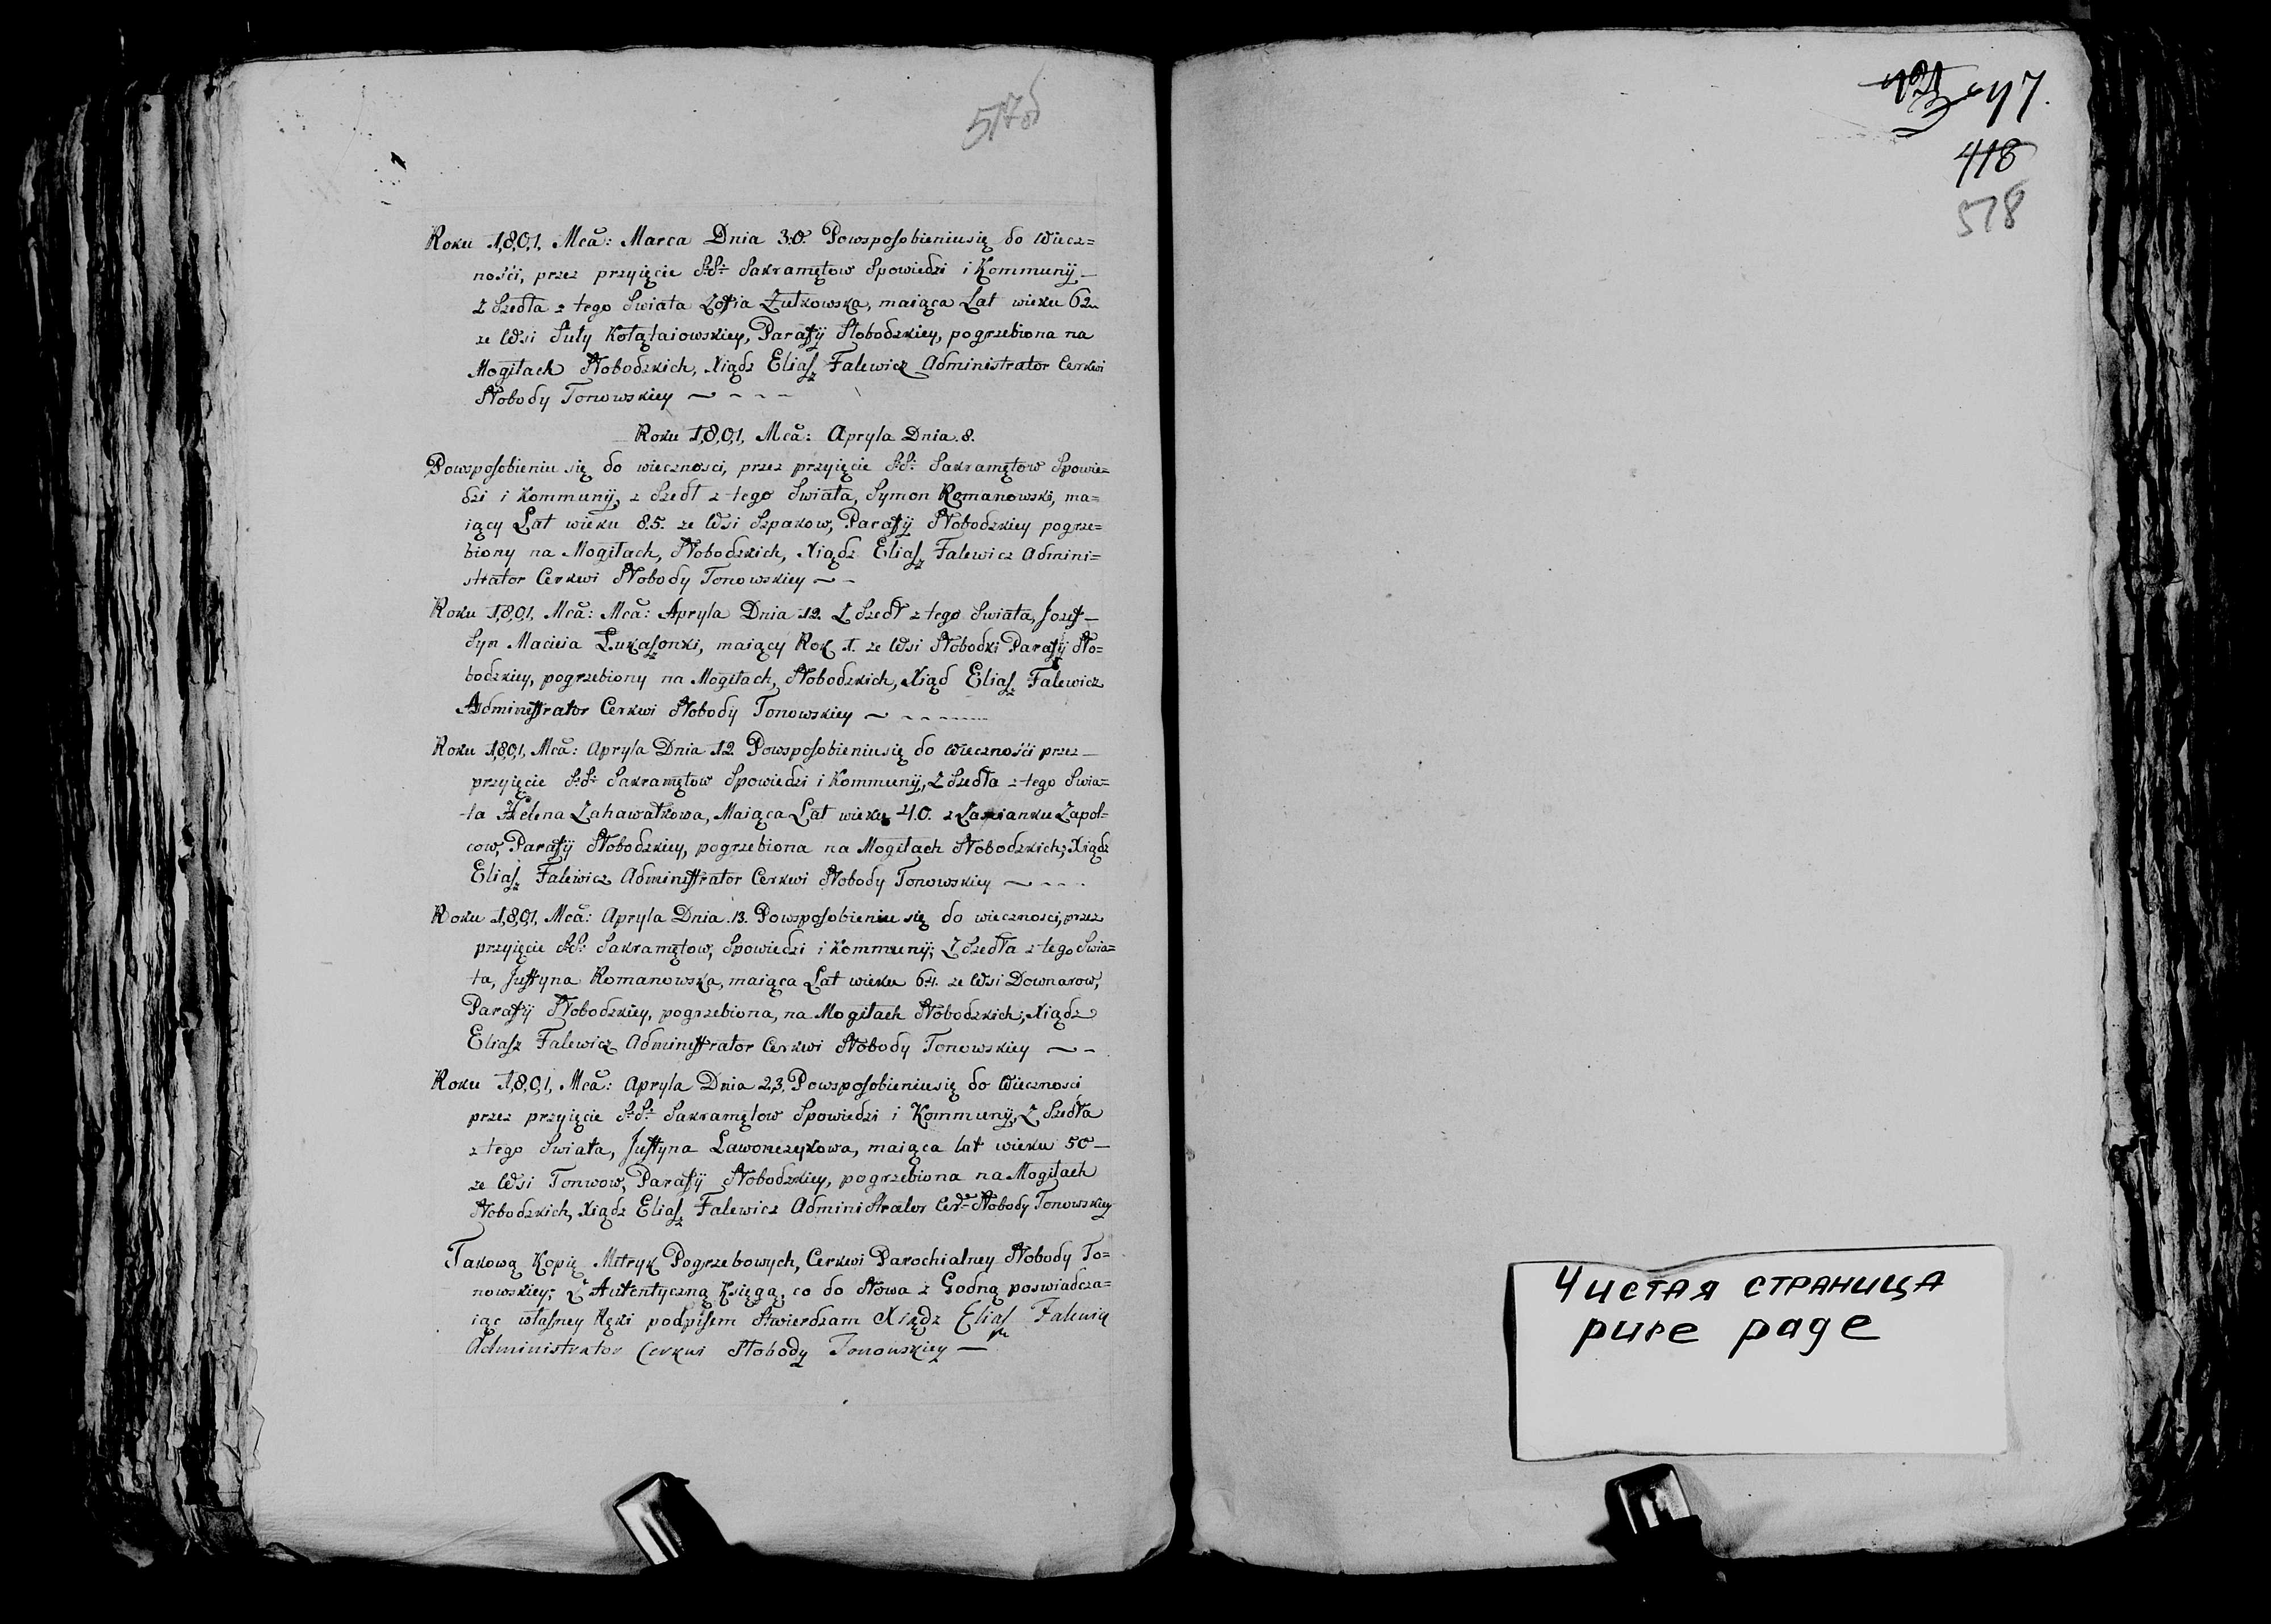 517об
Roku 1801. Mca: Marca Dnia 30. Powsposobieniusię do Wiecz=
ności, przez przyięcie S:S: Sakramętow Spowiedzi i Kommunij
Z Szedła z tego Swiata Zofia Żułkowska, maiąca Lat wieku 62
ze Wsi Suły Kołątaiowskiey, Parafij Słobodzkiey, pogrzebiona na
Mogiłach Słobodzkich, Xiądz Eliasz Falewicz Administrator Cerkwi
Słobody Tonowskiey
Roku 1801, Mca: Apryla Dnia 8.
Powsposobieniu się do wiecznosci, przez przyięcie S:S: Sakramętow Spowie=
dzi i Kommunij, z Szedł z tego Swiata, Symon Romanowski, ma=
iący Lat wieku 85. ze Wsi Szpakow, Parafij Słobodzkiey pogrze=
biony na Mogiłach, Słobodzkich, Xiądz Eliasz Falewicz Admini=
strator Cerkwi Słobody Tonowskiey
Roku 1801, Mca: Mca: Apryla Dnia 12. Z Szedł z tego Swiata, Jozef
Syn Macieia Łukaszonki, maiący Rok 1. ze Wsi Słobodki Parafij Sło=
bodzkiey, pogrzebiony na Mogiłach, Słobodzkich, Xiąd Eliasz Falewicz
Administrator Cerkwi Słobody Tonowskiey
Roku 1801, Mca: Apryla Dnia 12 Powsposobieniusię do Wieczności przez
przyięcie S:S: Sakramętow Spowiedzi i Kommunij, Z Szedła z tego Swia=
ta Helena Zahawałkowa, Maiąca Lat wieku 40. z Zascianku Zapol=
cow, Parafij Słobodzkiey, pogrzebiona na Mogiłach Słobodzkich, Xiądz
Eliasz Falewicz Administrator Cerkwi Słobody Tonowskiey
Roku 1801, Mca: Apryla Dnia 13. Powsposobieniu się do wiecznosci, przez
przyięcie S:S: Sakramętow, Spowiedzi i Kommunij, Z Szedła z tego Swia=
ta, Justyna Romanowska, maiąca Lat wieku 64. ze Wsi Downarow,
Parafij Słobodzkiey, pogrzebiona, na Mogiłach Słobodzkich, Xiądz
Eliasz Falewicz Administrator Cerkwi Słobody Tonowskiey
Roku 1801, Mca: Apryla Dnia 23. Powsposobieniusię do Wiecznosci
przez przyięcie S:S: Sakramętow Spowiedzi i Kommunij, Z Szedła
z tego Swiata, Justyna Ławonczykowa, maiąca lat wieku 50
ze Wsi Tonwow, Parafij Słobodzkiey, pogrzebiona na Mogiłach
Słobodzkich, Xiądz Eliasz Falewicz Administrator Cer: Słobody Tonowskiey
Takową Kopię Metryk Pogrzebowych, Cerkwi Parochialney Słobody To=
nowskiey, z Autentyczną Księgą, co do Słowa z Godną poswiadcza=
iąc własney Ręki podpisem Stwierdzam Xiądz Eliasz Falewicz
Administrator Cerkwi Słobody Tonowskiey
47.
418
518
Чистая страница
pure page